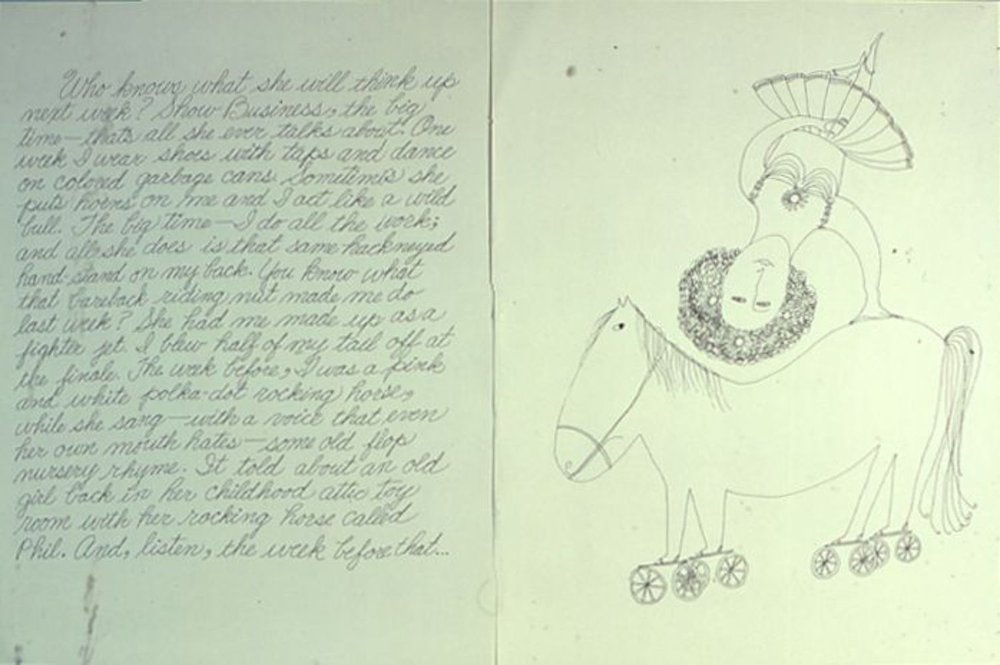 Who knows what she will think up
next week? Show Business, the big
time—thats all she ever talks about. One
week I wear shoes with taps and dance
on colored garbage cans. Sometimes she
puts horns on me and I act like a wild
bull. The big time—I do all the work;
and all she does is that same hackneyed
hand-stand on my back. You know what
that bareback riding nut made me do
last week? She had me made up as a
fighter jet. I blew half of my tail off at
the finale. The week before, I was a pink
and white polka-dot rocking horse,
while she sang—with a voice that even
her own mouth hates—some old flop
nursery rhyme. It told about an old
girl back in her childhood attic toy
room with her rocking horse called
Phil. And, listen, the week before that...